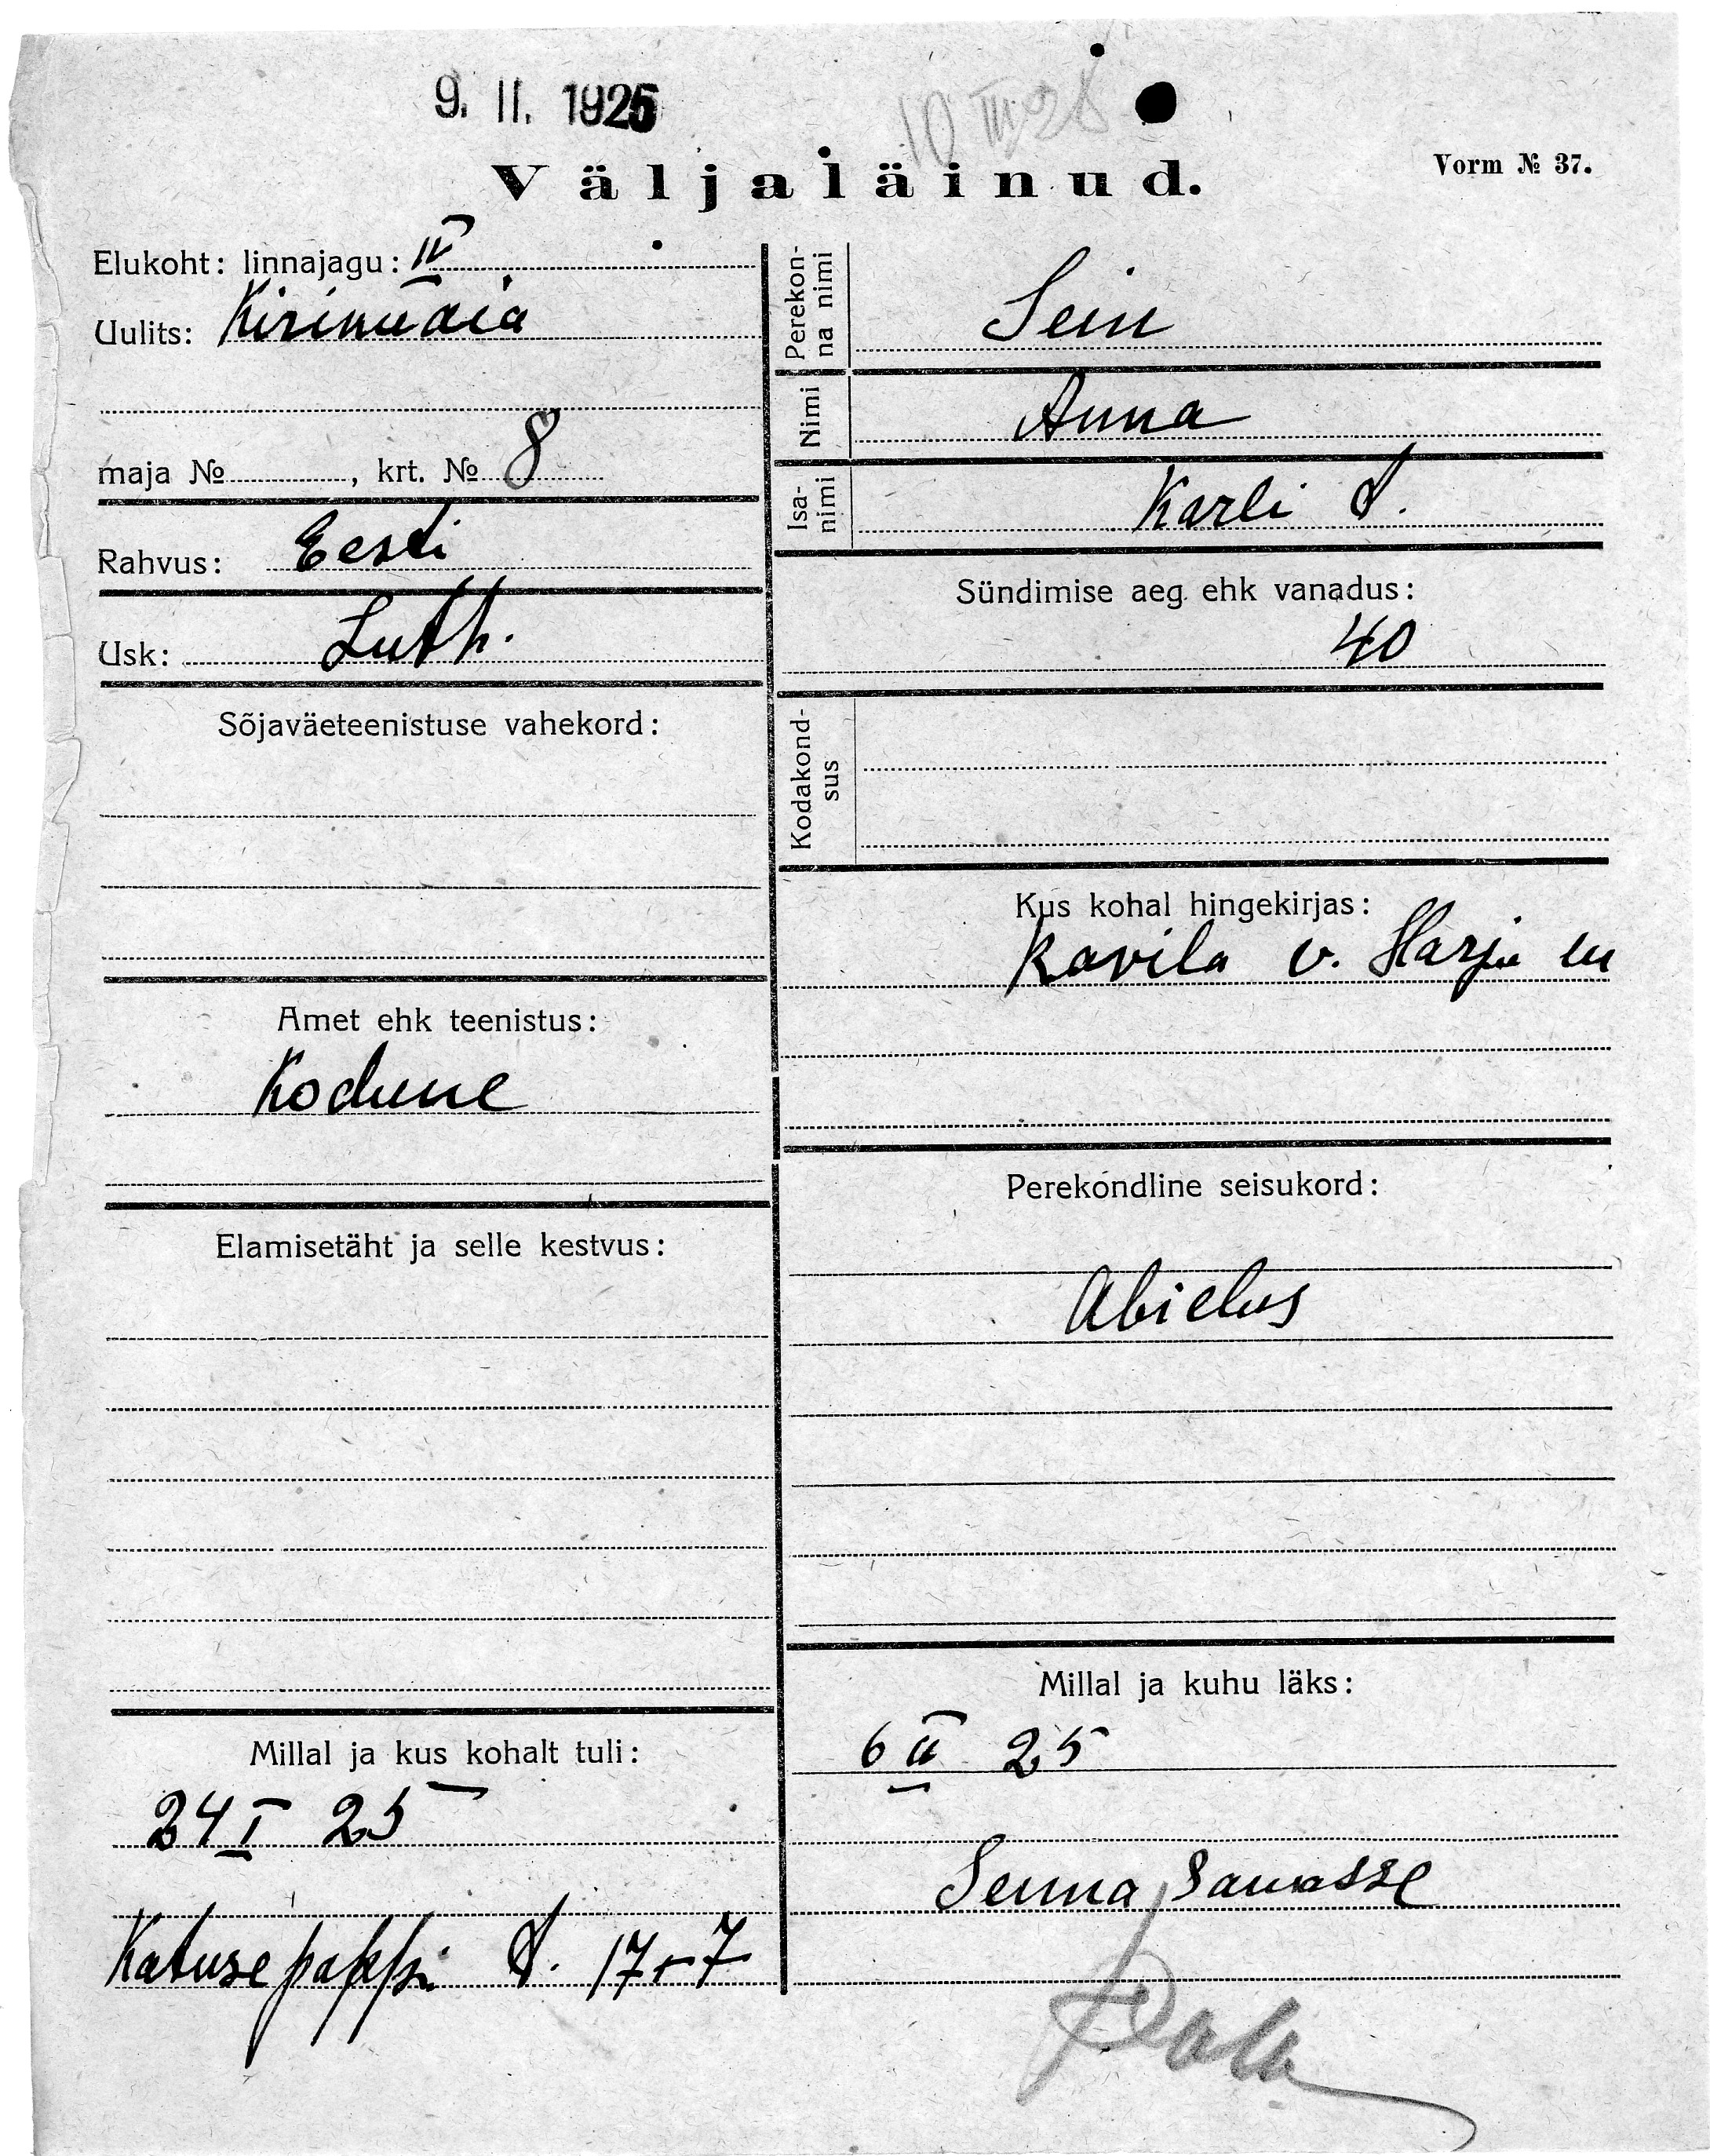 9. II. 1925
10 III 25
Väljaläinud.
Vorm № 37.
Elukoht: linnajagu: IV
Uulits: Kirimäeaia
maja № , krt. № 8
Rahvus: Eesti
Usk: Luth.
Sõjaväeteenistuse vahekord:
Amet ehk teenistus:
Kodune
Elamisetäht ja selle kestvus:
Millal ja kus kohalt tuli:
24 I 25
Katusepappi t. 17-7
Perekon-
na nimi
Sein
Nimi
Anna
Isa-
nimi
Karli t.
Sündimise aeg ehk vanadus:
40
Kodakond-
sus
Kus kohal hingekirjas:
Ravila v. Harju m
Perekondline seisukord:
Abielus
Millal ja kuhu läks:
6 II 25
Senna samasse